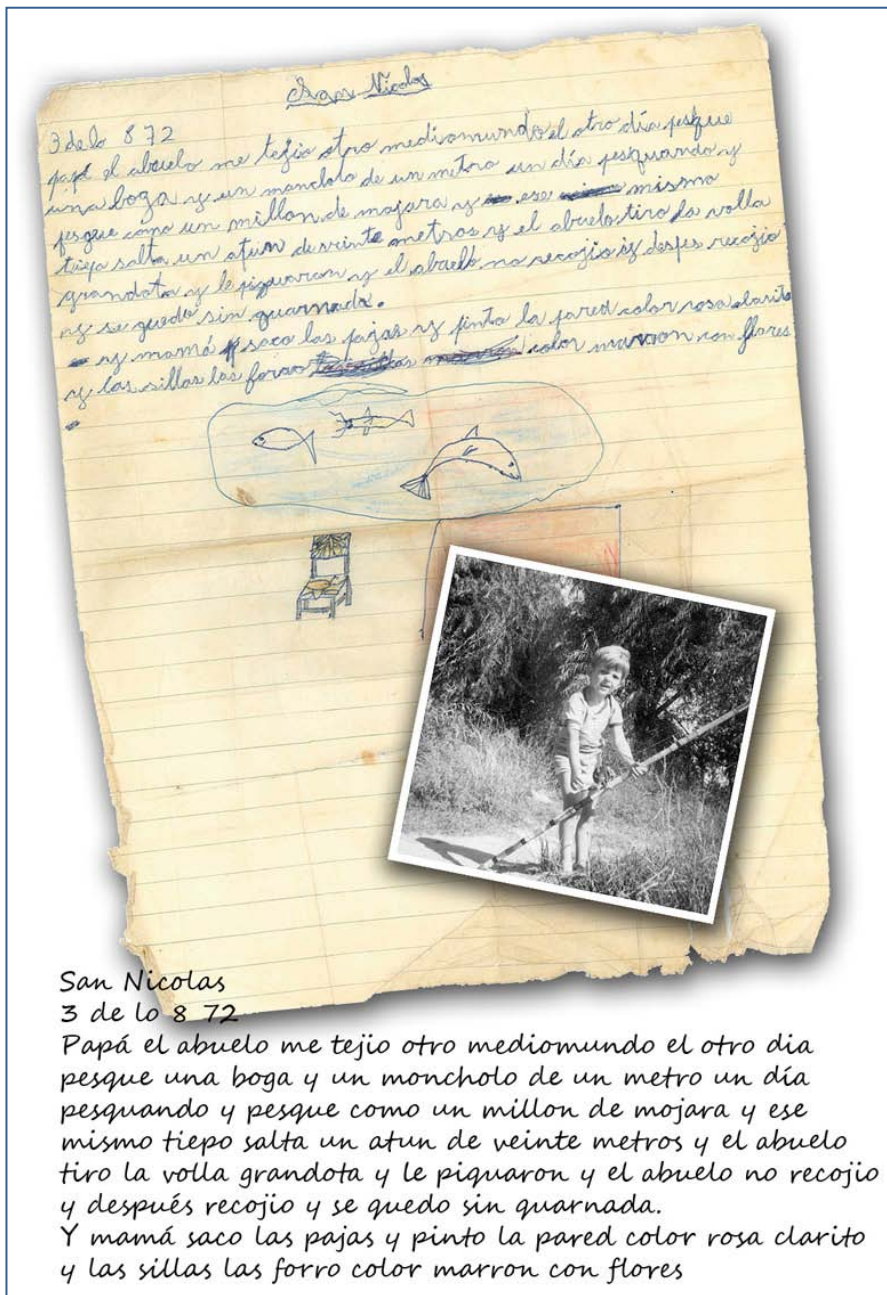 San Nicolas
3 de lo 8 72
papá el abuelo me tejio otro mediomundo el otro día pesque
una boga y un moncholo de un metro un día pesquando y
pesque como un millon de mojara y ese mismo
tiepo salta un atun de veinte metros y el abuelo tiro la volla
grandota y le piquaron y el abuelo no recojio y despes recojio
y se quedo sin quarnada.
y mamá saco las pajas y pinto la pared color rosa clarito
y las sillas las forro color marron con flores
San Nicolas
3 de lo 8 72
Papá el abuelo me tejio otro mediomundo el otro dia
pesque una boga y un moncholo de un metro un día
pesquando y pesque como un millon de mojara y ese
mismo tiepo salta un atun de veinte metros y el abuelo
tiro la volla grandota y le piquaron y el abuelo no recojio
y después recojio y se quedo sin quarnada.
Y mamá saco las pajas y pinto la pared color rosa clarito
y las sillas las forro color marron con flores